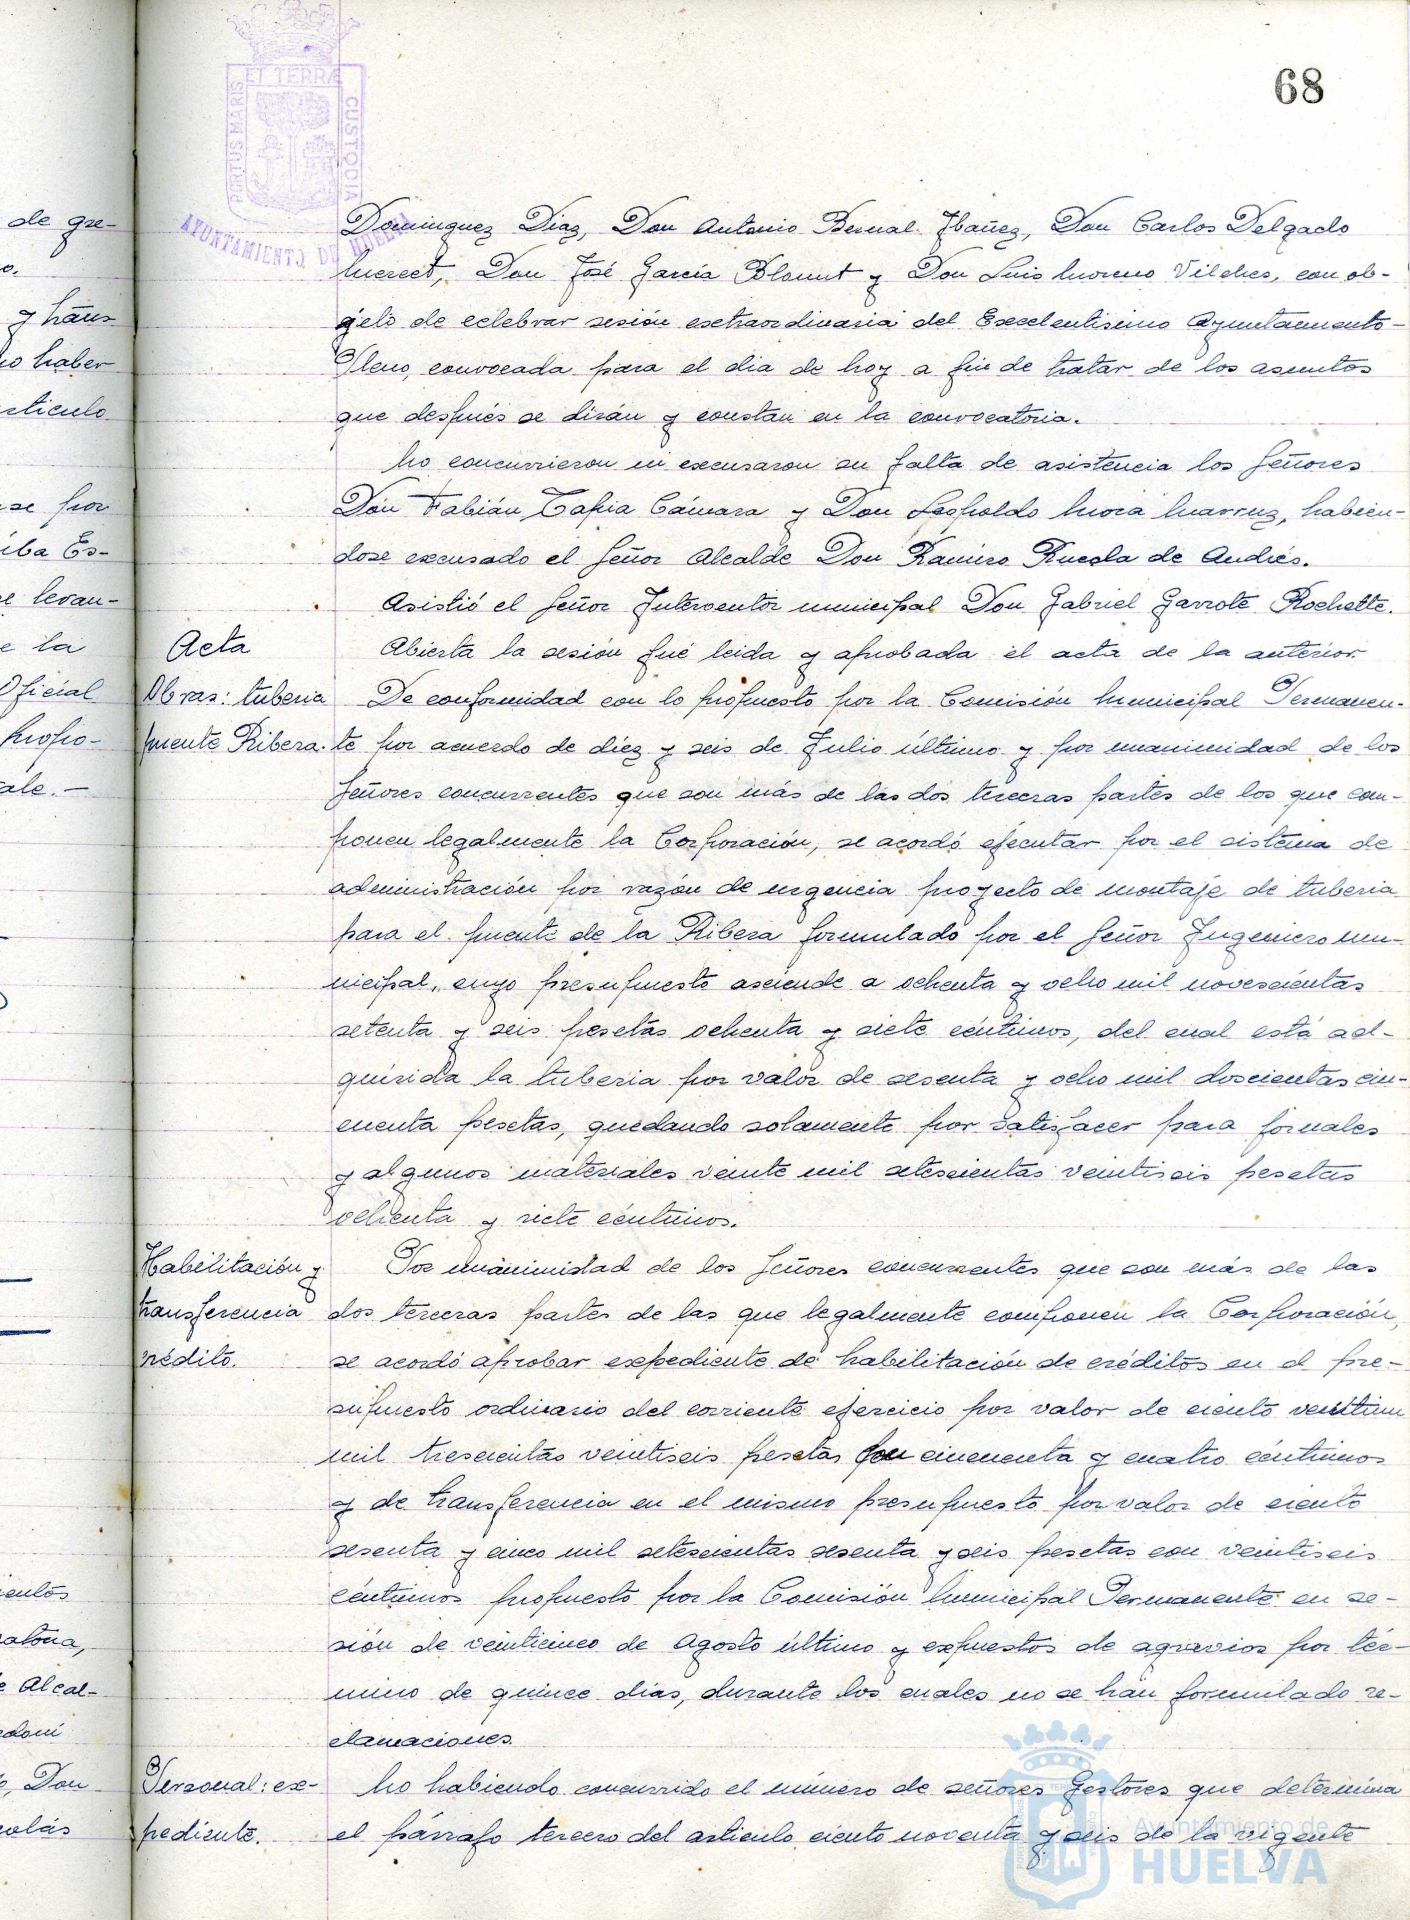 68
PORTUS MARIS ET TERRÆ CUSTODIA
AYUNTAMIENTO DE HUELVA
de gre-
o.
y trans
no haber
artículo
se por
iba Es-
se levan-
e la
Oficial
propo-
ale.-
ientos
atoria,
e Alcal-
, Don
olás
Dominguez Diaz, Don Antonio Bernal Ibañez, Don Carlos Delgado
Merect, Don José García Blount y Don Luis Moreno Vilches, con ob-
jeto de celebrar sesión extraordinaria del Excelentisimo Ayuntamiento-
Pleno, convocada para el dia de hoy a fin de tratar de los asuntos
que después se dirán y constan en la convocatoria.
No concurrieron ni excusaron su falta de asistencia los Señores
Don Fabián Tapia Cámara y Don Leopoldo Mora Marruz, habien-
dose excusado el Señor Alcalde Don Ramiro Rueda de Andrés.
Asistió el Señor Interventor municipal Don Gabriel Garrote Rochette.
Acta
Abierta la sesión fué leida y aprobada el acta de la anterior.
Obras: tuberia
puente Ribera.
De conformidad con lo propuesto por la Comisión Municipal Permanen-
te por acuerdo de diez y seis de Julio ultimo y por unanimidad de los
Señores concurrentes que son más de las dos terceras partes de los que com-
ponen legalmente la Corporación, se acordó ejecutar por el sistema de
administración por razón de urgencia proyecto de montaje de tuberia
para el puente de la Ribera formulado por el Señor Ingeniero mu-
nicipal, cuyo presupuesto asciende a ochenta y ocho mil novescientas
setenta y seis pesetas ochenta y siete céntimos, del cual está ad-
quirida la tuberia por valor de sesenta y ocho mil doscientas cin-
cuenta pesetas, quedando solamente por satisfacer para jornales
y algunos materiales veinte mil setescientas veintiseis pesetas
ochenta y siete céntimos.
Habilitación y
transferencia
crédito.
Por unanimidad de los Señores concurrentes que son más de las
dos terceras partes de las que legalmente componen la Corporación,
se acordó aprobar expediente de habilitación de créditos en el pre-
supuesto ordinario del corriente ejercicio por valor de ciento veintiun
mil trescientas veintiseis pesetas con cincuenta y cuatro céntimos
y de transferencia en el mismo presupuesto por valor de ciento
sesenta y cinco mil setescientas sesenta y seis pesetas con veintiseis
céntimos propuesto por la Comisión Municipal Permanente en se-
sión de veinticinco de Agosto último y expuestos de agravios por tér-
mino de quince dias, durante los cuales no se han formulado re-
clamaciones.
Personal: ex-
pediente.
No habiendo concurrido el número de señores Gestores que determina
el párrafo tercero del articulo ciento noventa y seis de la vigente
Ayuntamiento de
HUELVA